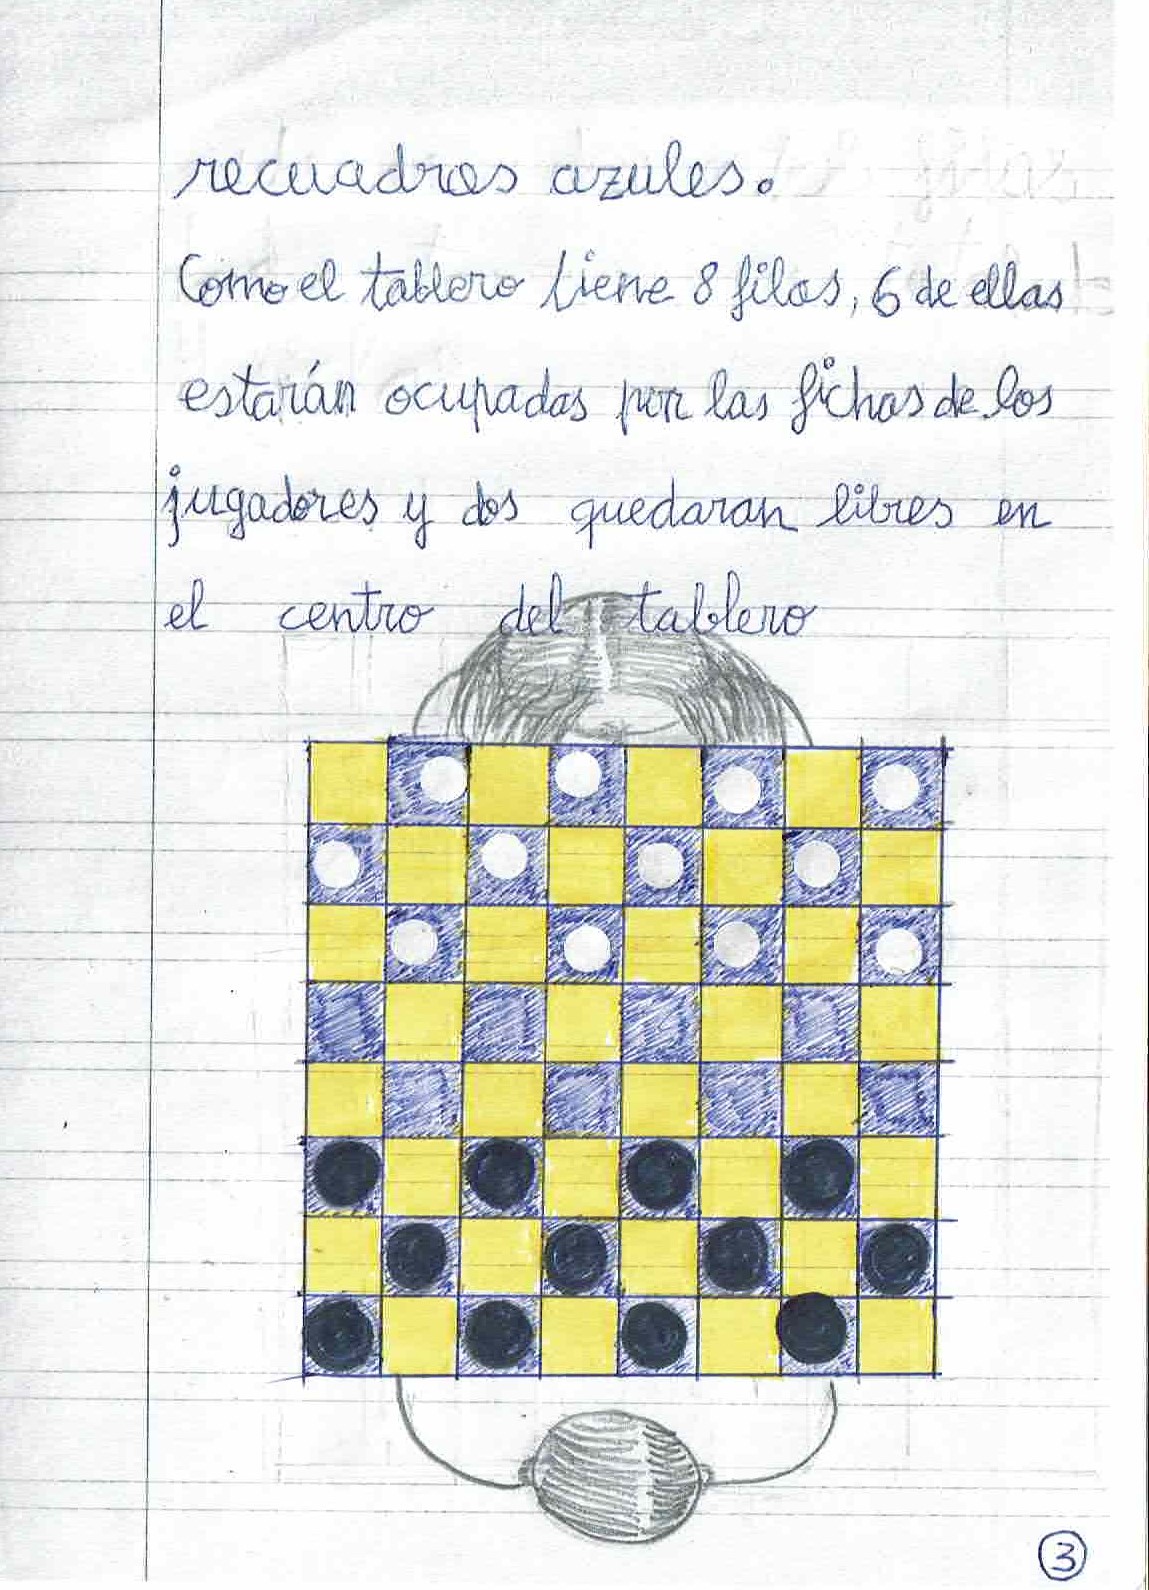 recuadros azules.
Como el tablero tiene 8 filas, 6 de ellas
estarán ocupadas por las fichas de los
jugadores y dos quedaran libres en
el centro del tablero
3